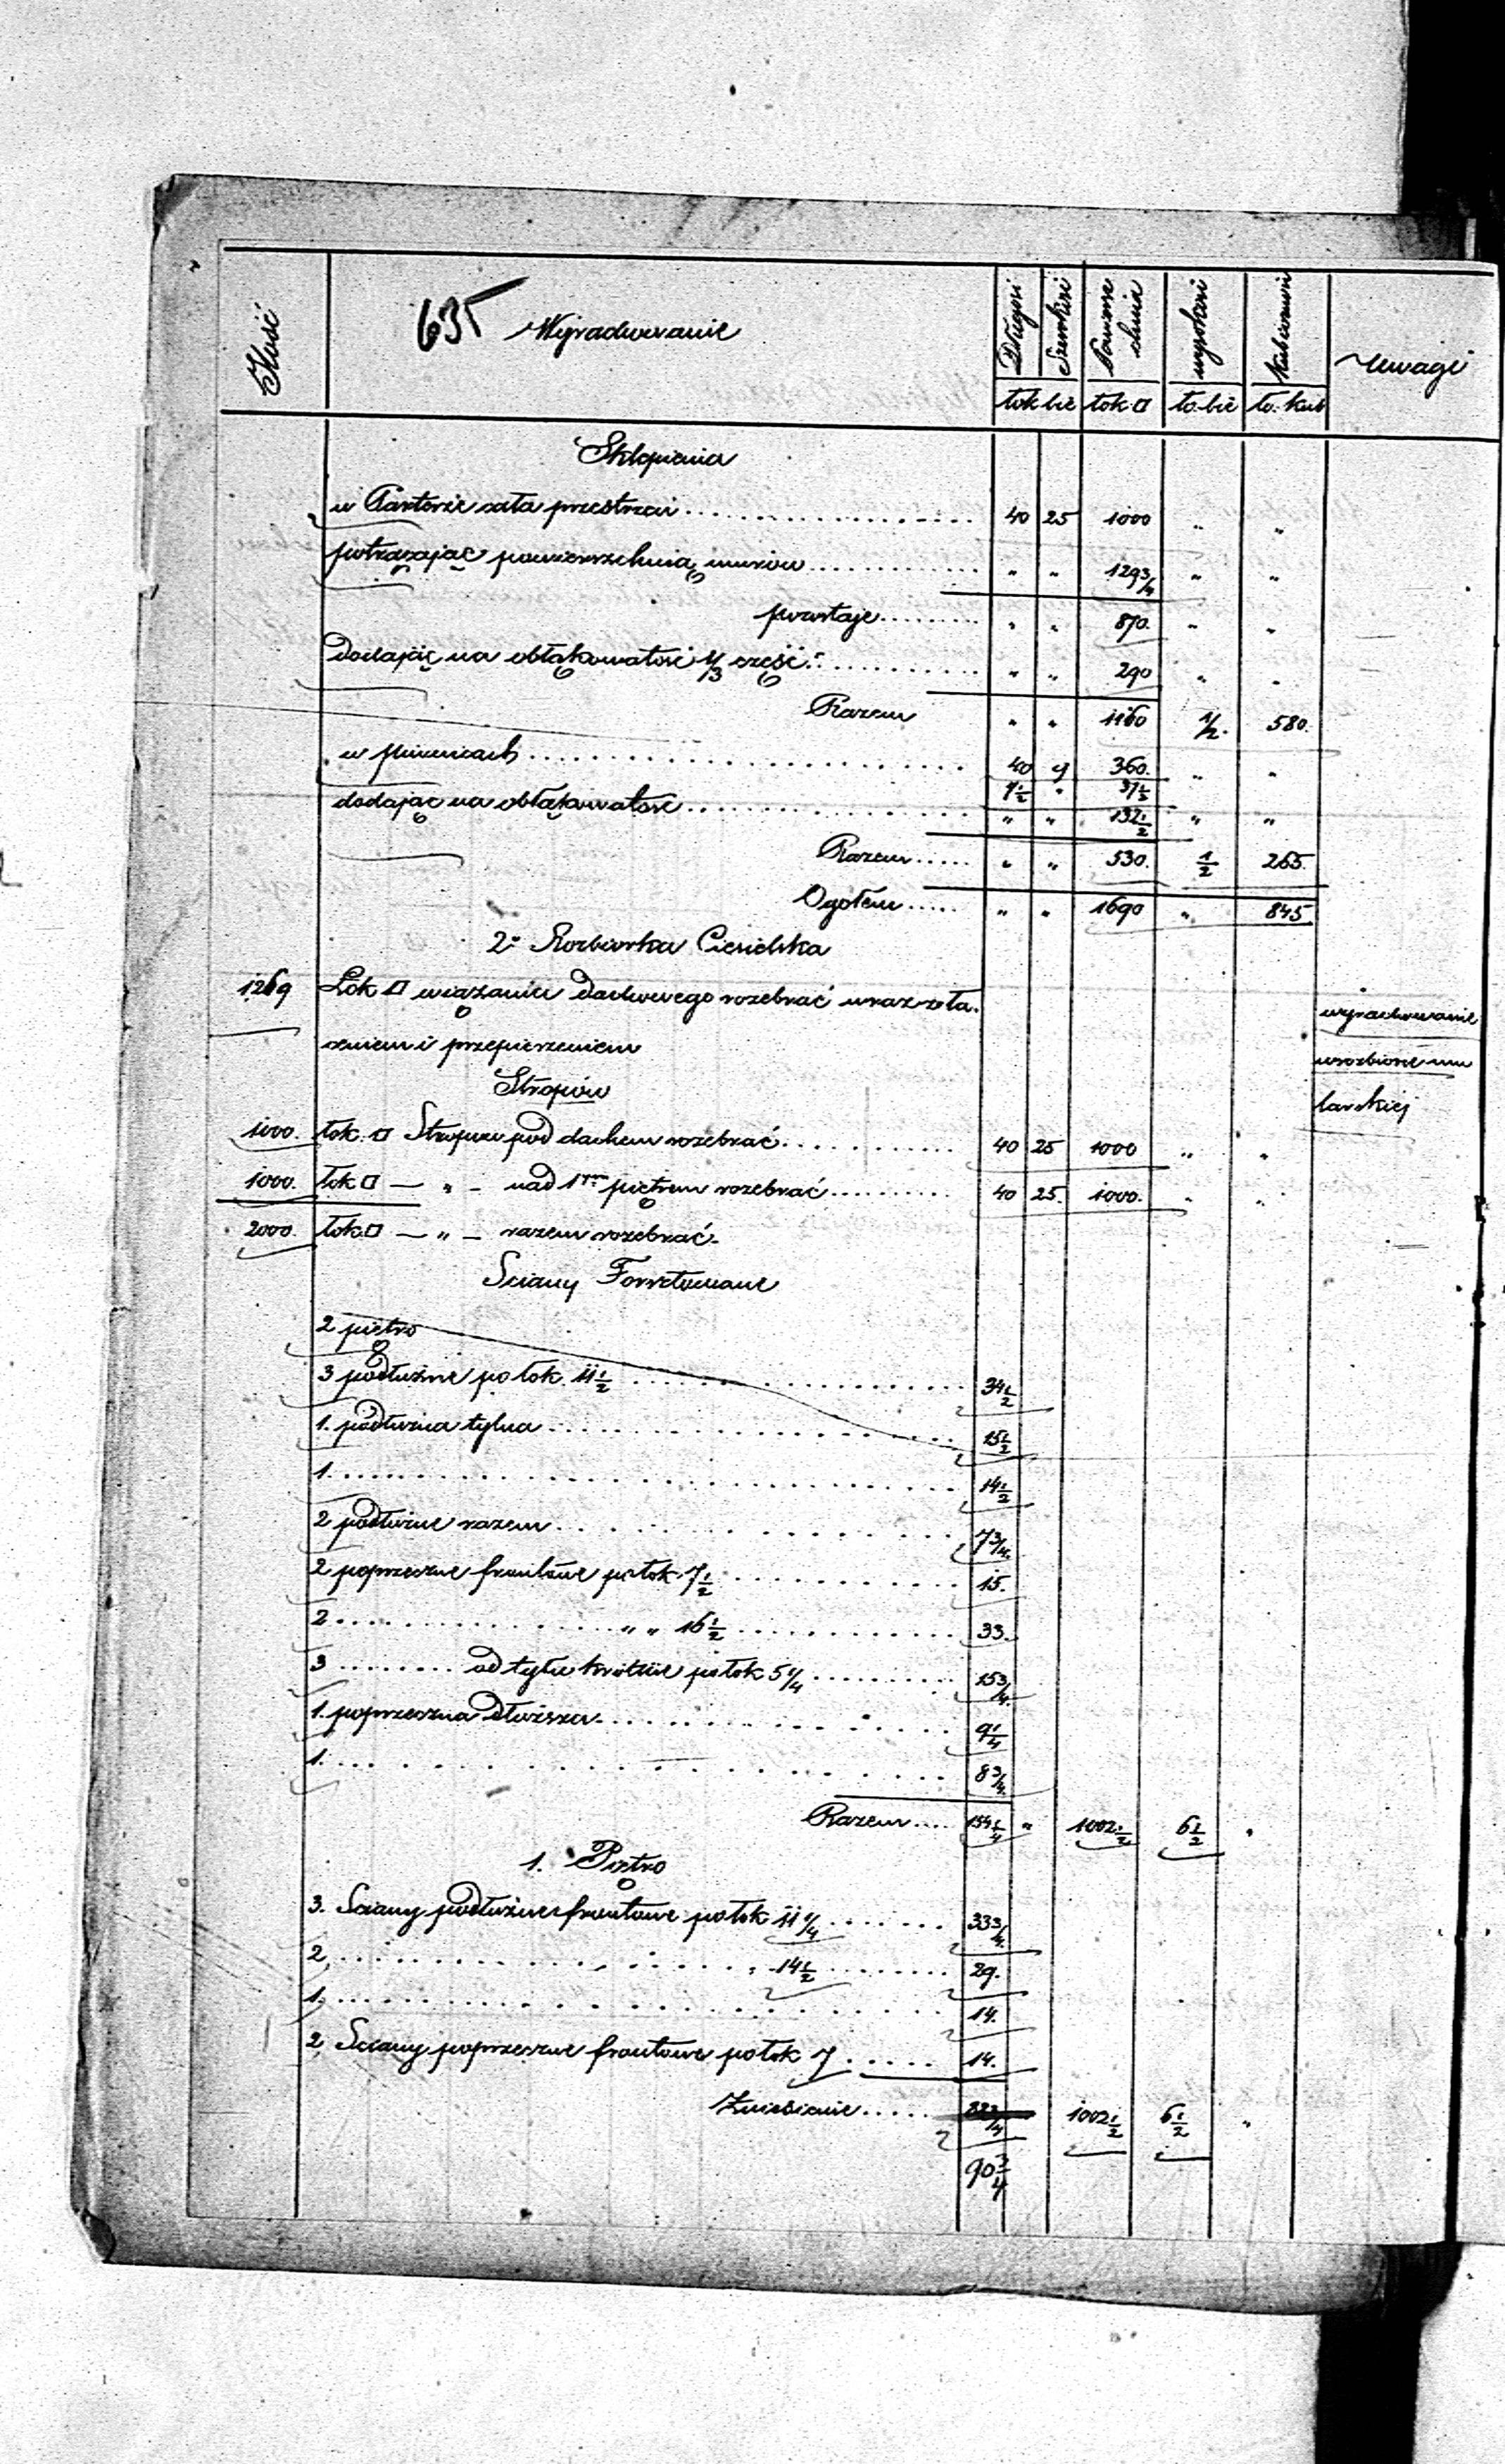 Ilość 635 Wyrachowanie Długości Szerokości Powierzchnia wysokości Kubiczność Uwagi
łok bie łok □ ło. bie ło. kub
Sklepienia
w Parterze cała przestrzeń 40 25 1000 " "
potrącając powierzchnią murów " " 129 3/4 " "
pozostaje " " 870. " "
Dodając na obłąkowatość 1/3 część " " 290 " "
Razem " " 1160 1/2. 580.
w piwnicach 40 9 360. " "
7 1/2 " 37 1/2
dodając na obłąkowatość " " 132 1/2 " "
Razem " " 530. 1/2 265.
Ogółem " " 1690 " 845
2° Rozbiorka Ciesielska
1269 Łok □ wiązania dachowego rozebrać wraz z oła-
ceniem i przepierzeniem
wyrachowanie
w rozbiorce mu
larskiej
Stropów
1000. łok. □ Stropu pod dachem rozebrać 40 25 1000 " "
1000. łok □ — " — nad 1m piętrem rozebrać 40 25. 1000. " "
2000. łok □ — " — razem rozebrać.
Sciany Forsztowane
2 piętro
3 podłużne po łok. 11 1/2 34 1/2
1. podłużna tylna 15 1/2
1. 14 1/2
2 podłużne razem 7 3/4.
2 poprzeczne frontowe po łok 7 1/2 15.
2 " " 16 1/2 33.
3 od tyłu krótsze po łok 5 1/4 15 3/4.
1. poprzeczna dłuższa 9 1/4
1. 8 3/4.
Razem 154 1/4 " 1002 1/2 6 1/2 "
1. Piętro
3. Sciany podłużne frontowe po łok 11 1/4 33 3/4.
2 " 14 1/2 29.
1. 14.
2 Sciany poprzeczne frontowe po łok 7 14.
Zniesienie 1002 1/2 6 1/2 "
90 3/4